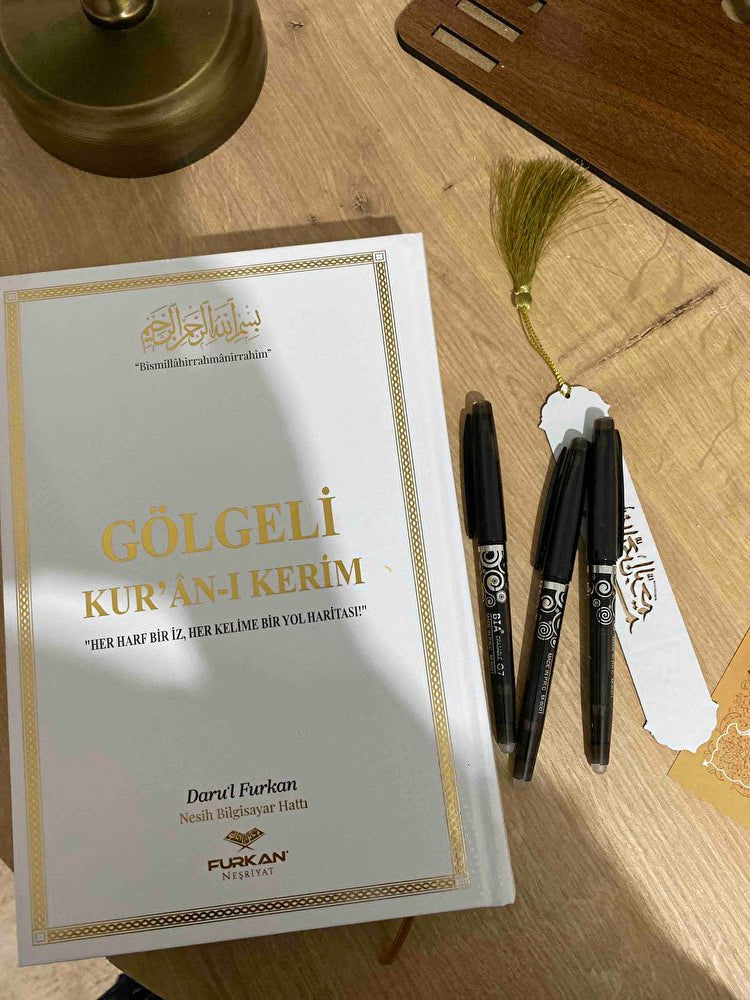 بسم الله الرحمن الرحيم
"Bismillâhirrahmânirrahîm"
GÖLGELİ
KUR'ÂN-I KERİM
"HER HARF BİR İZ, HER KELİME BİR YOL HARİTASI!"
Daru'l Furkan
Nesih Bilgisayar Hattı
FURKAN
NEŞRİYAT
DIA
07
MADE IN P.R.C. M-5001